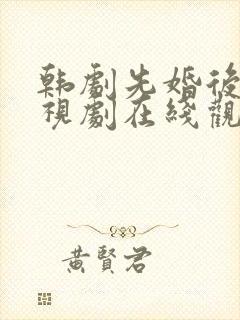 韩劇先婚後
視劇在綫觀
黃賢君